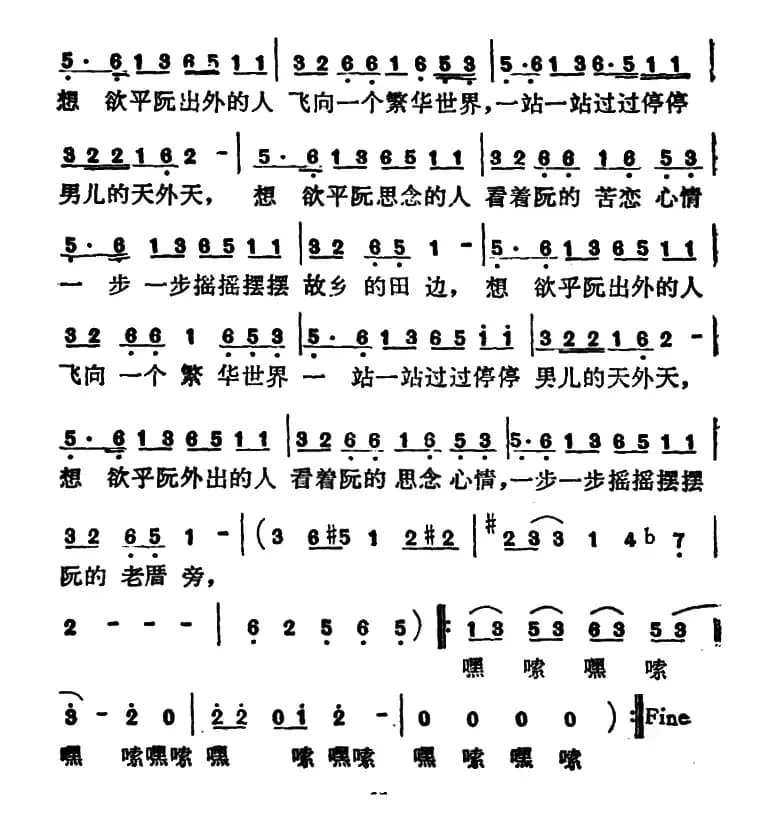 5· 6136511 | 3266165 3 | 5·6136·511 |
想 欲平阮出外的人 飞向一个繁华世界，一站一站过过停停
322162 - | 5· 6136511 | 3266 16 53 |
男儿的天外天， 想 欲平阮思念的人 看着阮的 苦恋 心情
5· 6 136511 | 32 65 1 - | 5· 6136511 |
一 步 一步摇摇摆摆 故乡 的田 边， 想 欲平阮出外的人
32 66 1 653 | 5· 6136511 | 322162 - |
飞向 一个 繁 华世界 一 站一站过过停停 男儿的天外天，
5· 6136511 | 3266 16 53 | 5·6136511 |
想 欲平阮外出的人 看着阮的 思念 心情，一步一步摇摇摆摆
32 65 1 - | (3 6#5 1 2#2 | #233 1 4 b7 |
阮的 老厝 旁，
2 - - - | 6 2 5 6 5 ) ‖: 13 53 63 53 |
嘿 嗦 嘿 嗦
3 - 2 0 | 22 01 2 - | 0 0 0 0 ) :‖ Fine
嘿 嗦嘿嗦 嘿 嗦 嘿嗦 嘿 嗦 嘿 嗦